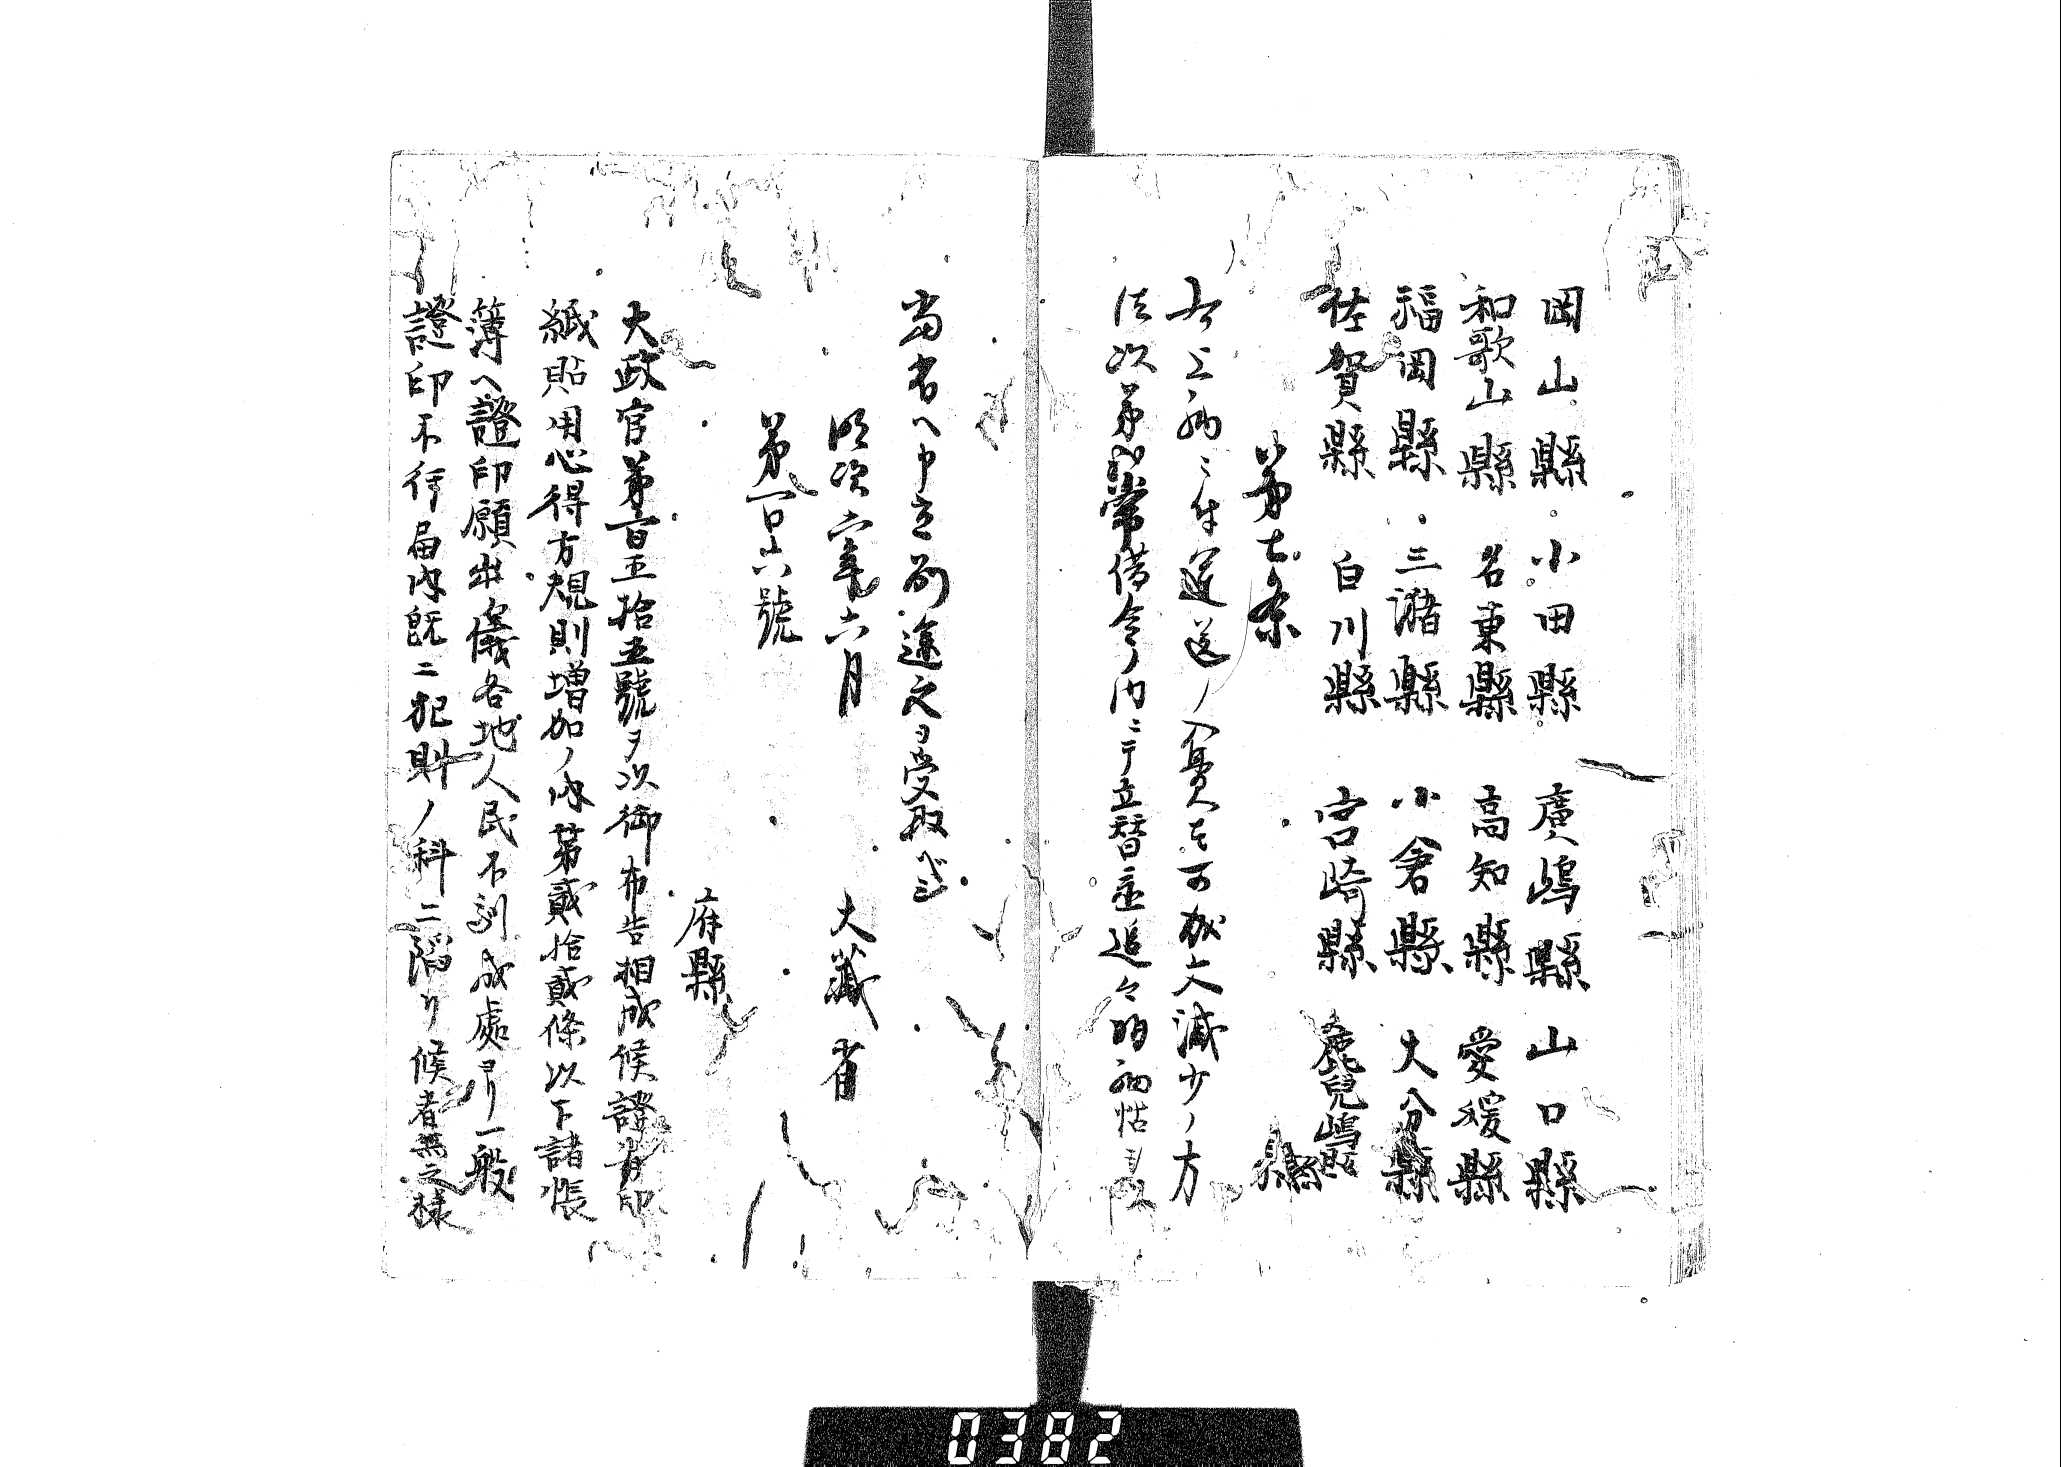 岡山縣 小田縣 廣嶋縣 山口縣
和歌山縣 名東縣 高知縣 愛媛縣
福岡縣 三潴縣 小倉縣 大分縣
佐賀縣 白川縣 宮崎縣 鹿兒嶋縣
第七条
右上納ニ付運送ノ入費モ可成丈減少ノ方
法次第 常備金ノ内ニテ立替置追々 納
当省ヘ申立別途之ヲ受取ベシ
明治六年六月 大藏省
第百六號
府縣
大政官第百五拾五號ヲ以御布告相成候證券印
紙貼用心得方規則増加ノ内第貳拾貳條以下諸帳
簿ヘ證印願出儀各地人民不馴成處ヨリ一般
證印不行届内既ニ犯則ノ科ニ陥リ候者無之様
0382